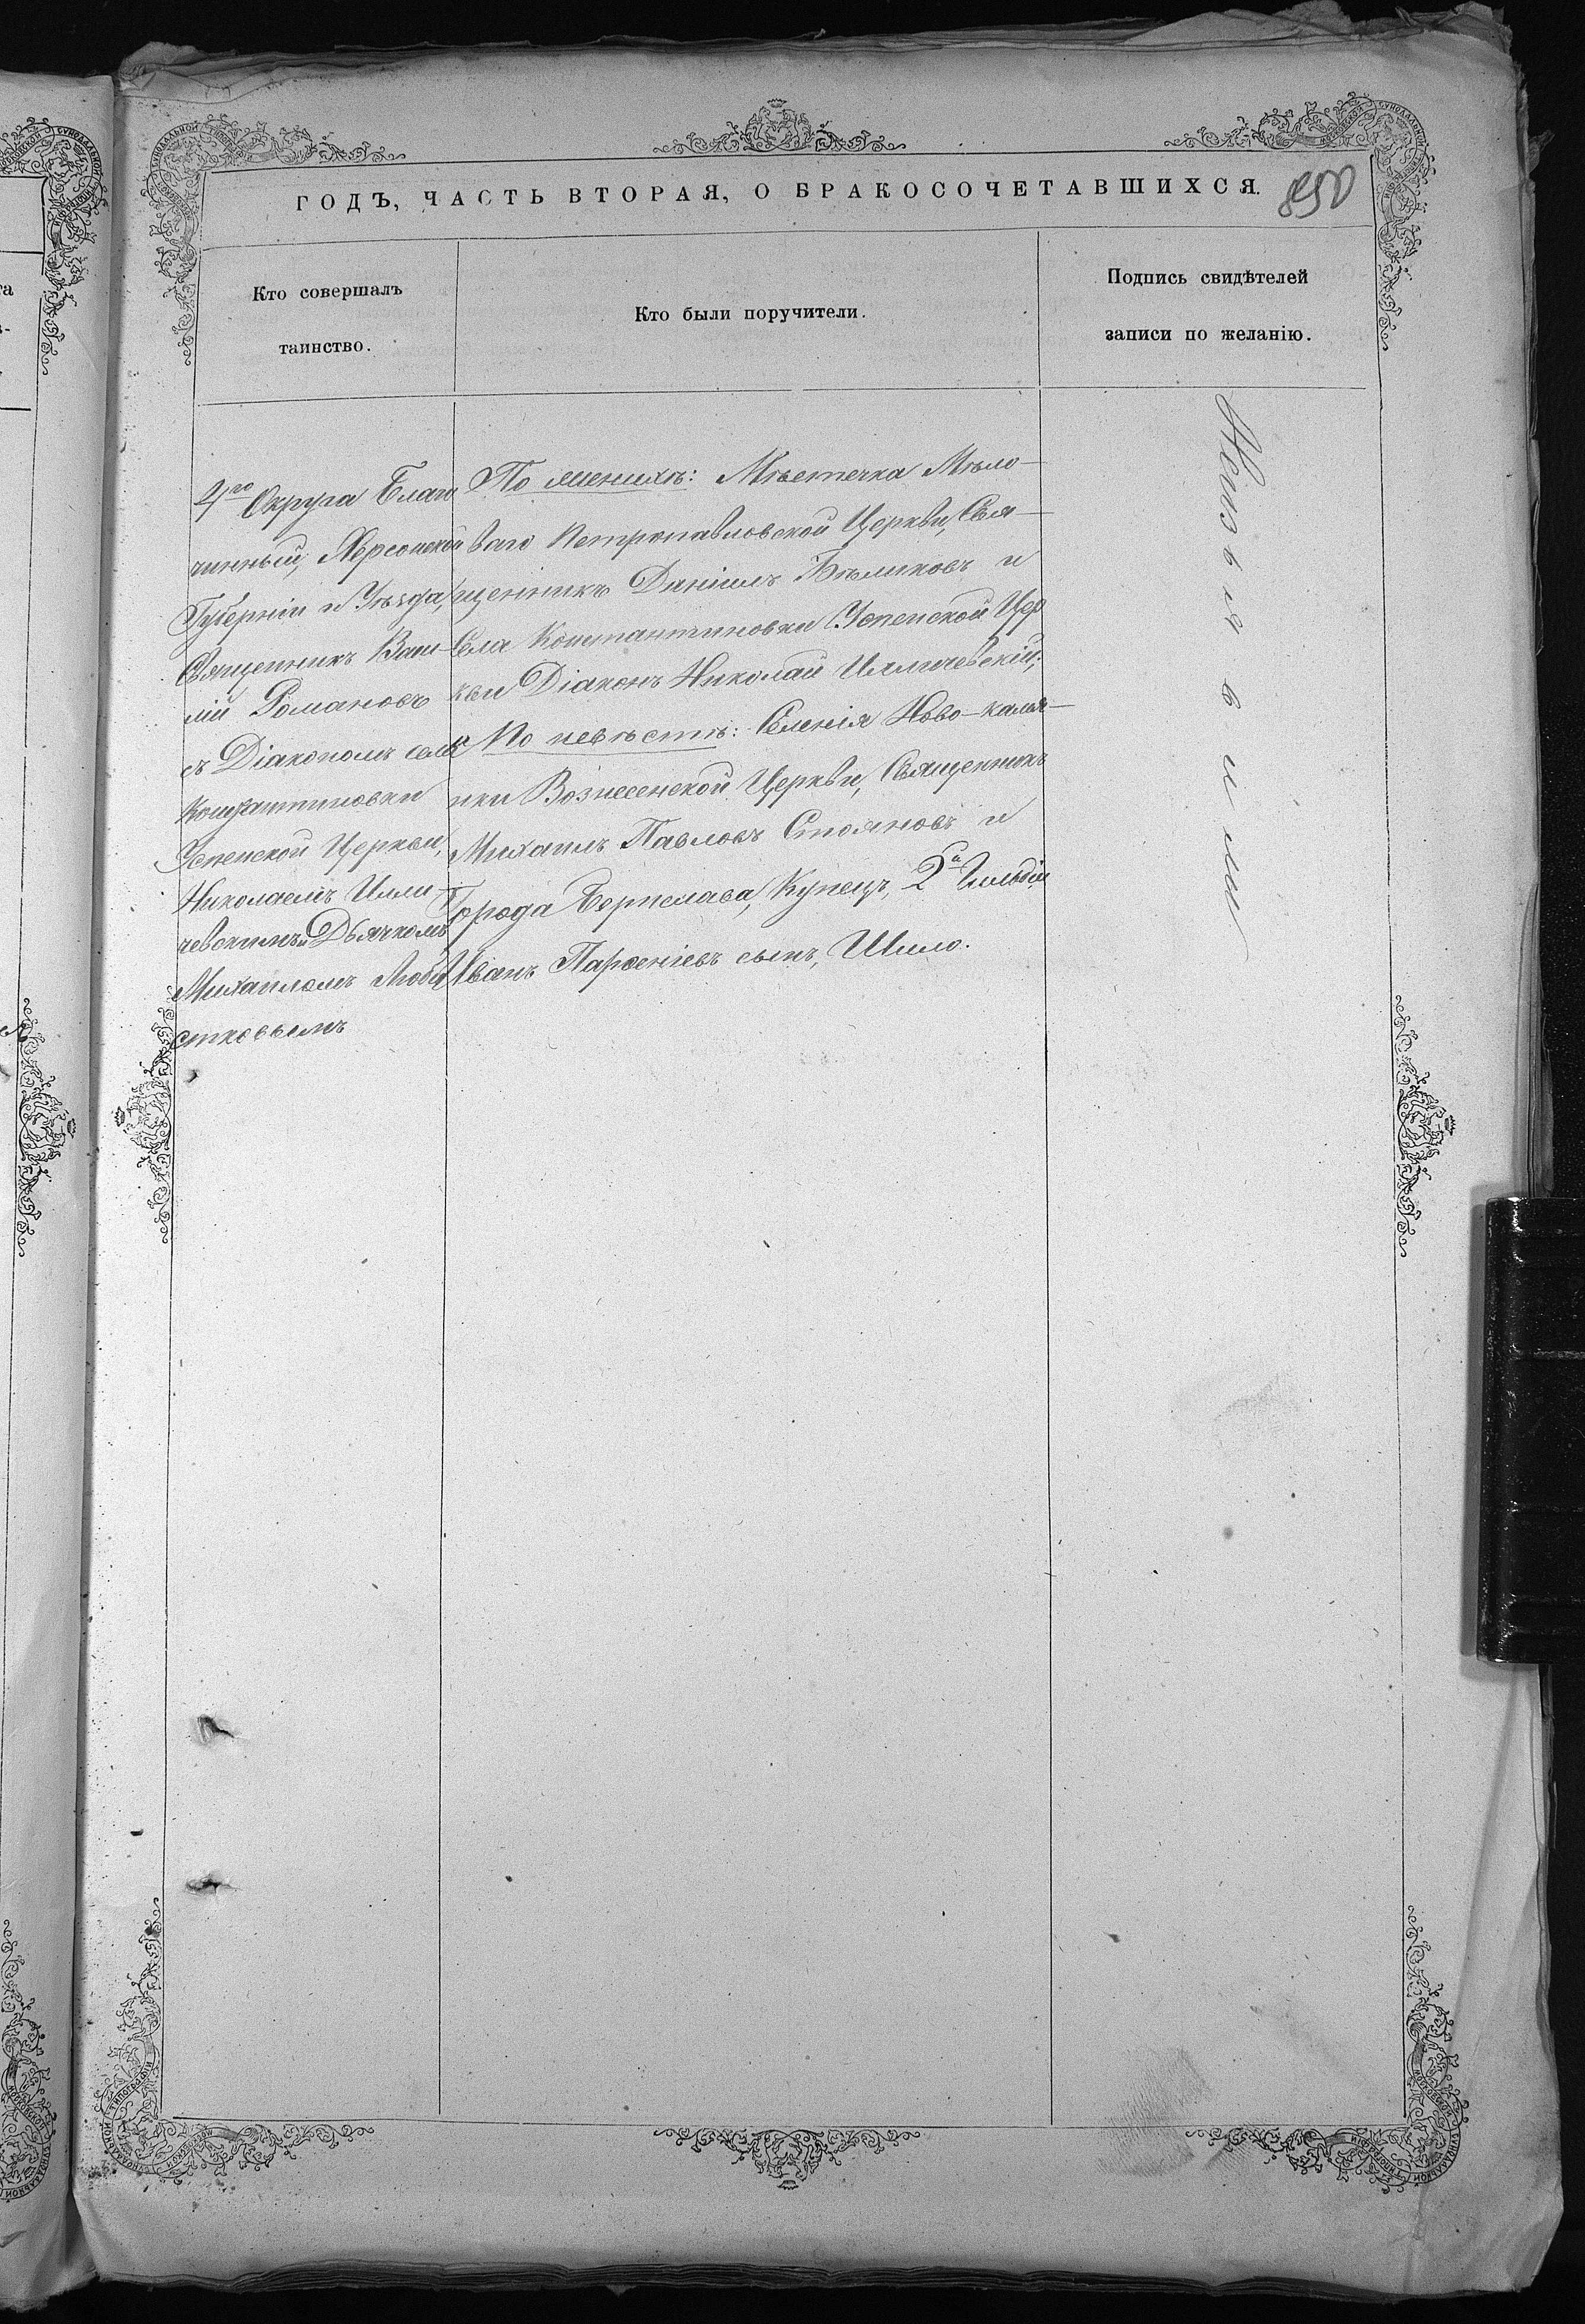 ГОДЪ, ЧАСТЬ ВТОРАЯ, О БРАКОСОЧЕТАВШИХСЯ.
850
Кто совершалъ
таинство.
Кто были поручители.
Подпись свидѣтелей
записи по желанію.
4го Округа Благо
чинный, Херсонской
Губерніи и Уѣзда,
Священникъ Васи-
лій Романовъ
съ Діакономъ села
Константиновки
Успенской Церкви,
Николаемъ Илли-
чевскимъ и Дьячкомъ
Михаиломъ Люби
стковымъ
По женихѣ: Мѣстечка Мѣло-
ваго Петропавловской Церкви, Свя-
щенникъ Даніилъ Бѣликовъ и
Села Константиновки Успенской Цер
кви Діаконъ Николай Илличевскій;
По невѣстѣ: Селенія Ново-каме-
нки Вознесенской Церкви, Священникъ
Михаилъ Павловъ Стояновъ и
Города Берислава, Купецъ, 2й Гильдіи
Иванъ Парѳеніевъ сынъ, Шило.